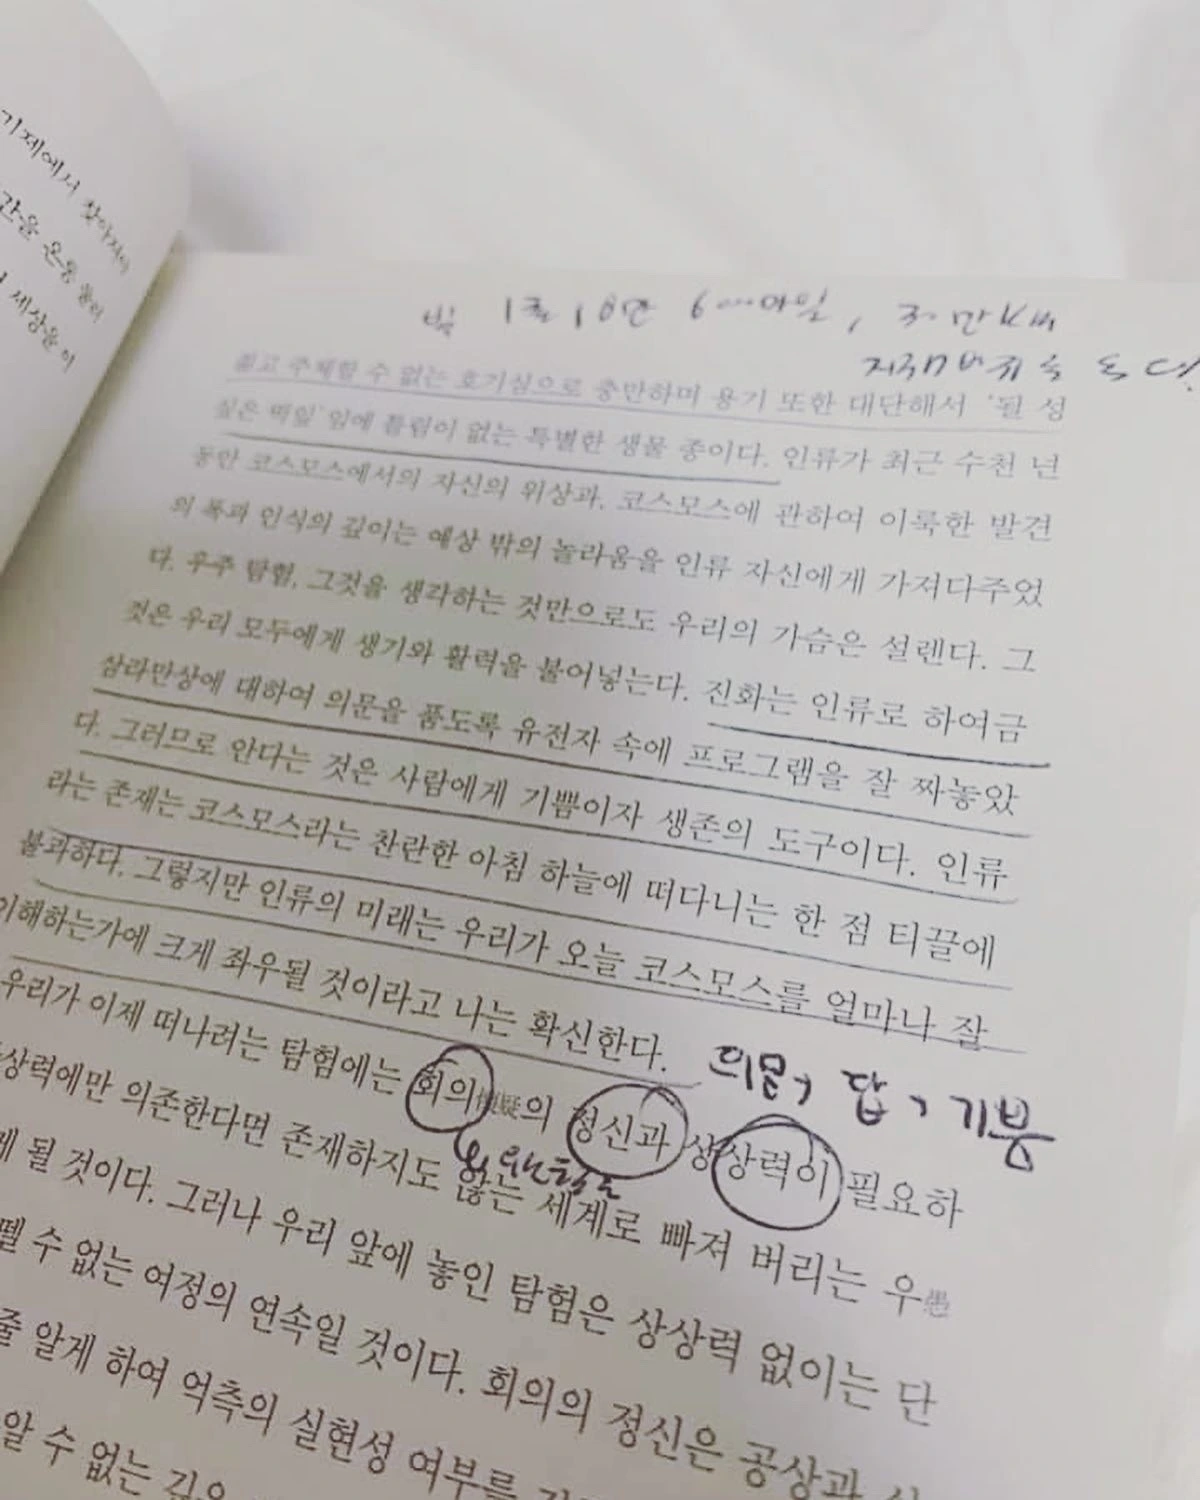 기제에서 찾아지
간을 온통 돌
세상을 이
빛 1초 18만 6000마일, 30만km
지구 7바퀴를 돈다.
젊고 주체할 수 없는 호기심으로 충만하며 용기 또한 대단해서 '될 성
싶은 떡잎'임에 틀림이 없는 특별한 생물 종이다. 인류가 최근 수천 년
동안 코스모스에서의 자신의 위상과, 코스모스에 관하여 이룩한 발견
의 폭과 인식의 깊이는 예상 밖의 놀라움을 인류 자신에게 가져다주었
다. 우주 탐험, 그것을 생각하는 것만으로도 우리의 가슴은 설렌다. 그
것은 우리 모두에게 생기와 활력을 불어넣는다. 진화는 인류로 하여금
삼라만상에 대하여 의문을 품도록 유전자 속에 프로그램을 잘 짜놓았
다. 그러므로 안다는 것은 사람에게 기쁨이자 생존의 도구이다. 인류
라는 존재는 코스모스라는 찬란한 아침 하늘에 떠다니는 한 점 티끌에
불과하다. 그렇지만 인류의 미래는 우리가 오늘 코스모스를 얼마나 잘
이해하는가에 크게 좌우될 것이라고 나는 확신한다.
의문, 답, 기쁨
우리가 이제 떠나려는 탐험에는 회의懷疑의 정신과 상상력이 필요하
상력에만 의존한다면 존재하지도 않는 세계로 빠져 버리는 우愚
게 될 것이다. 그러나 우리 앞에 놓인 탐험은 상상력 없이는 단
뗄 수 없는 여정의 연속일 것이다. 회의의 정신은 공상과
줄 알게 하여 억측의 실현성 여부를
알 수 없는